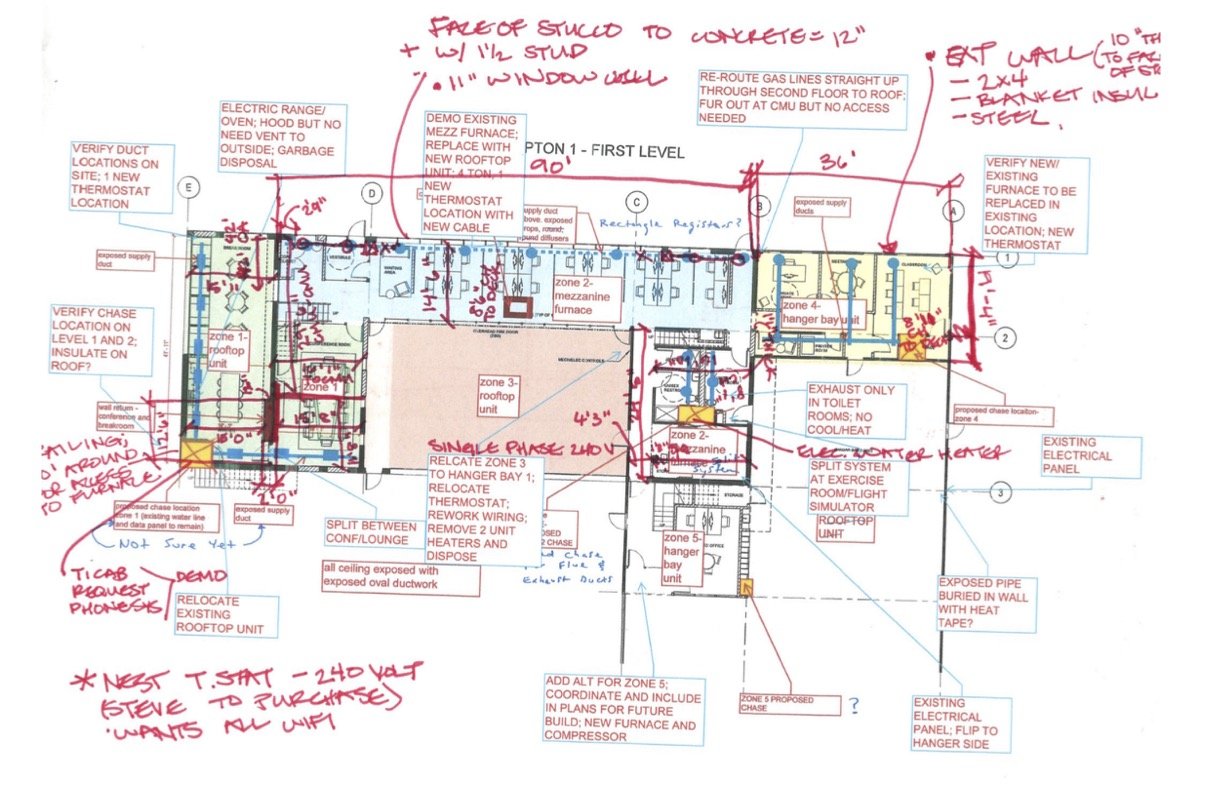 FACE OF STUCCO TO CONCRETE = 12"
+ W/ 1½ STUD
• 11" WINDOW WALL
• EXT WALL
10"
- 2x4
- BLANKET INSUL
- STEEL
RE-ROUTE GAS LINES STRAIGHT UP
THROUGH SECOND FLOOR TO ROOF;
FUR OUT AT CMU BUT NO ACCESS
NEEDED
ELECTRIC RANGE/
OVEN; HOOD BUT NO
NEED VENT TO
OUTSIDE; GARBAGE
DISPOSAL
DEMO EXISTING
MEZZ FURNACE;
REPLACE WITH
NEW ROOFTOP
UNIT; 4 TON, 1
NEW
THERMOSTAT
LOCATION WITH
NEW CABLE
PTON 1 - FIRST LEVEL
90'
36'
VERIFY DUCT
LOCATIONS ON
SITE; 1 NEW
THERMOSTAT
LOCATION
VERIFY NEW/
EXISTING
FURNACE TO BE
REPLACED IN
EXISTING
LOCATION; NEW
THERMOSTAT
E
D
C
B
A
exposed supply
ducts
Rectangle Registers?
exposed supply
duct
BREAK ROOM
VESTIBULE
WAITING
AREA
CLASSROOM
1
14'-6"
17'-4"
zone 2-
mezzanine
furnace
zone 4-
hanger bay unit
VERIFY CHASE
LOCATION ON
LEVEL 1 AND 2;
INSULATE ON
ROOF?
zone 1-
rooftop
unit
OVERHEAD FIRE DOOR
MECH/ELEC CONTROLS
2
zone 1
zone 3-
rooftop
unit
EXHAUST ONLY
IN TOILET
ROOMS; NO
COOL/HEAT
proposed chase locaiton-
zone 4
wall return -
conference and
breakroom
4'3"
zone 2-
mezzanine
furnace
split
system
SINGLE PHASE 240V
ELEC. WATER HEATER
EXISTING
ELECTRICAL
PANEL
15'0"
2'0"
RELCATE ZONE 3
TO HANGER BAY 1;
RELOCATE
THERMOSTAT;
REWORK WIRING;
REMOVE 2 UNIT
HEATERS AND
DISPOSE
SPLIT SYSTEM
AT EXERCISE
ROOM/FLIGHT
SIMULATOR
ROOFTOP
UNIT
3
STORAGE
proposed chase location
zone 1 (existing water line
and data panel to remain)
exposed supply
duct
SPLIT BETWEEN
CONF/LOUNGE
Not Sure Yet
zone 5-
hanger
bay
unit
OFFICE
all ceiling exposed with
exposed oval ductwork
chase
Flue &
Exhaust Ducts
DEMO
REQUEST
RELOCATE
EXISTING
ROOFTOP UNIT
EXPOSED PIPE
BURIED IN WALL
WITH HEAT
TAPE?
* NEST T.STAT - 240 VOLT
(STEVE TO PURCHASE)
WANTS ALL WIFI
ADD ALT FOR ZONE 5;
COORDINATE AND INCLUDE
IN PLANS FOR FUTURE
BUILD; NEW FURNACE AND
COMPRESSOR
ZONE 5 PROPOSED
CHASE
?
EXISTING
ELECTRICAL
PANEL; FLIP TO
HANGER SIDE